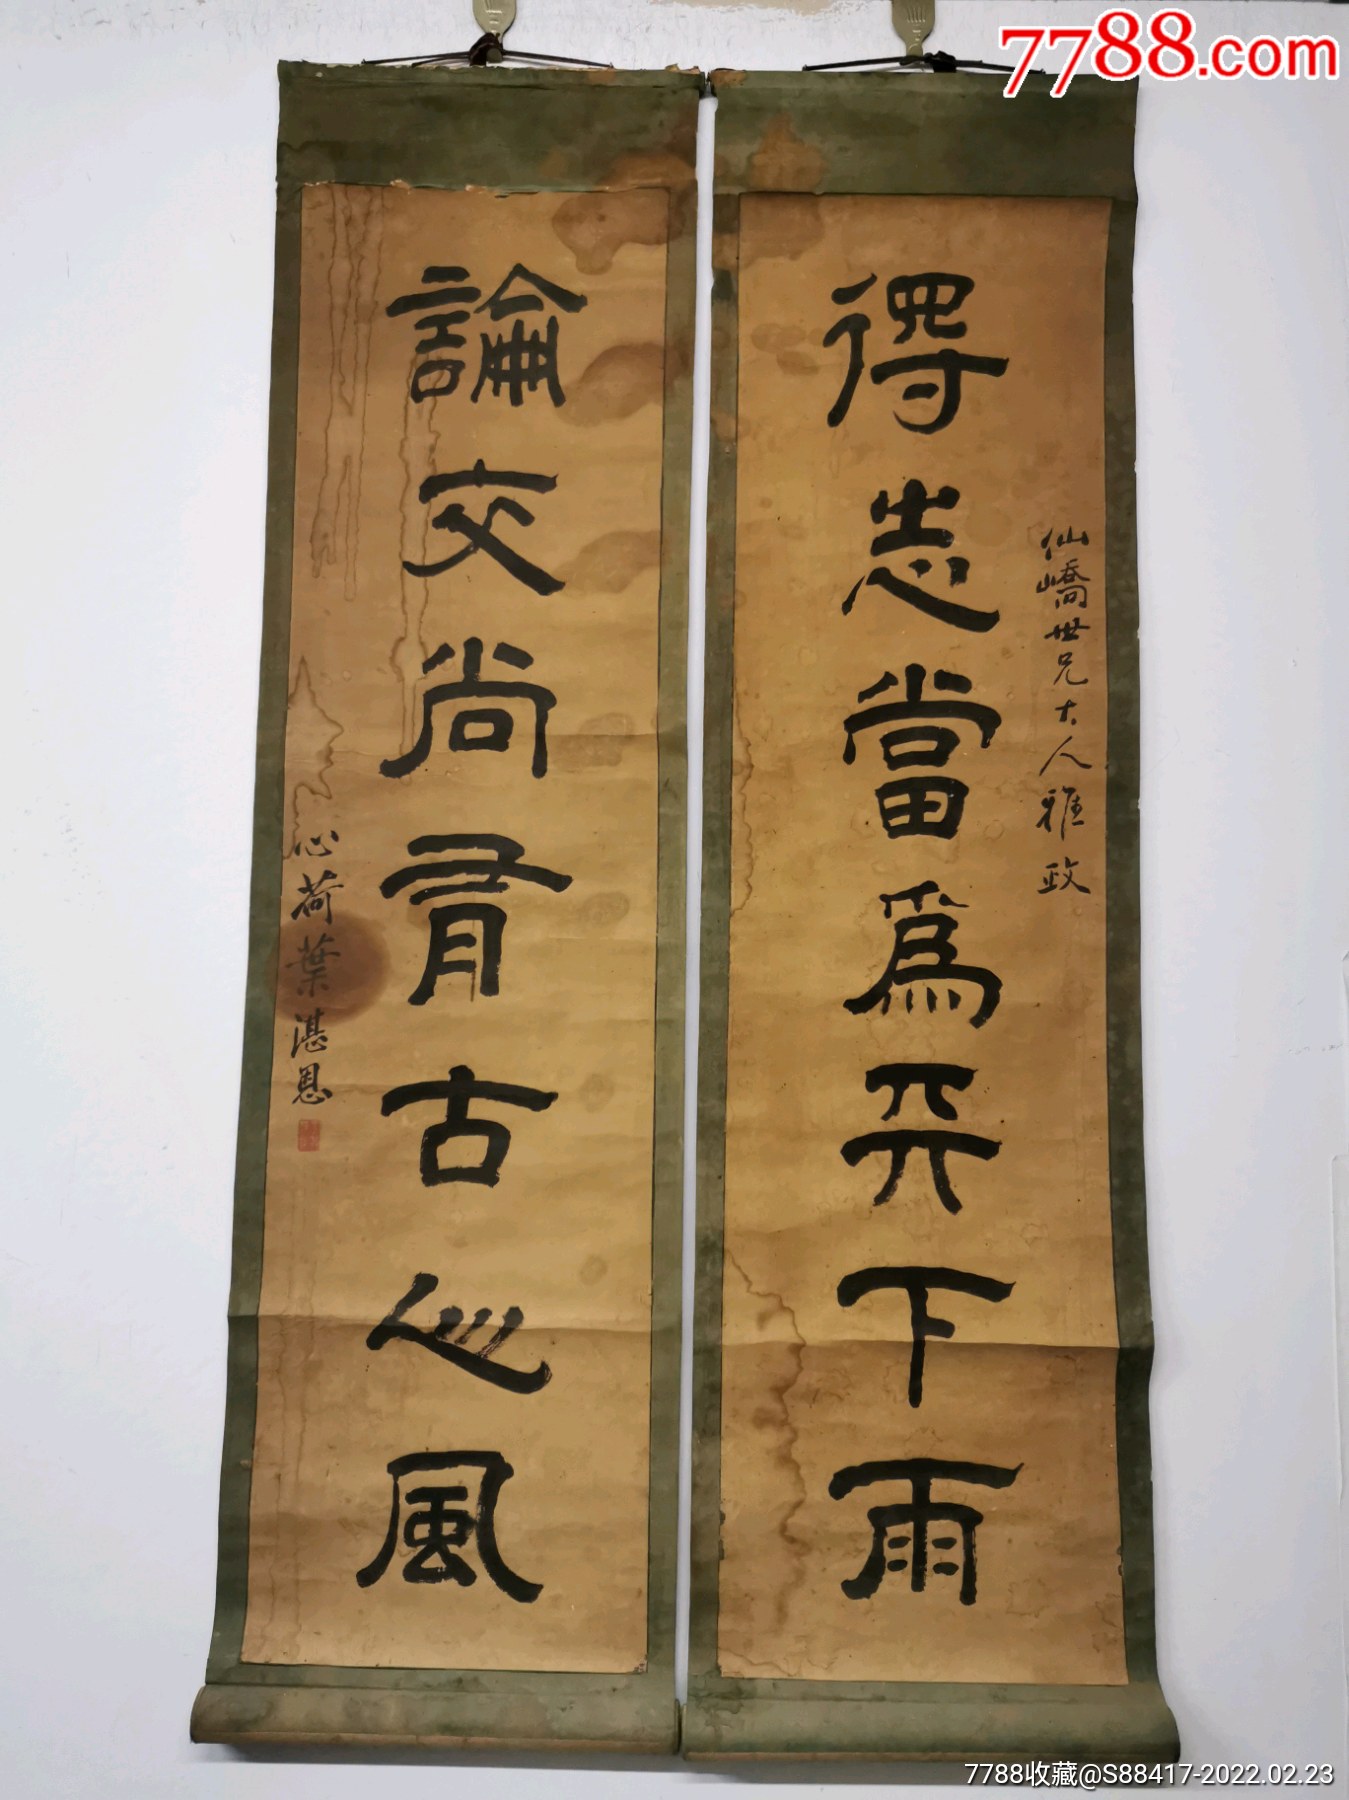 7788.com
得志當為天下雨
仙嶠世兄大人雅政
論交尚有古人風
心荷葉湛恩
7788收藏@S88417-2022.02.23